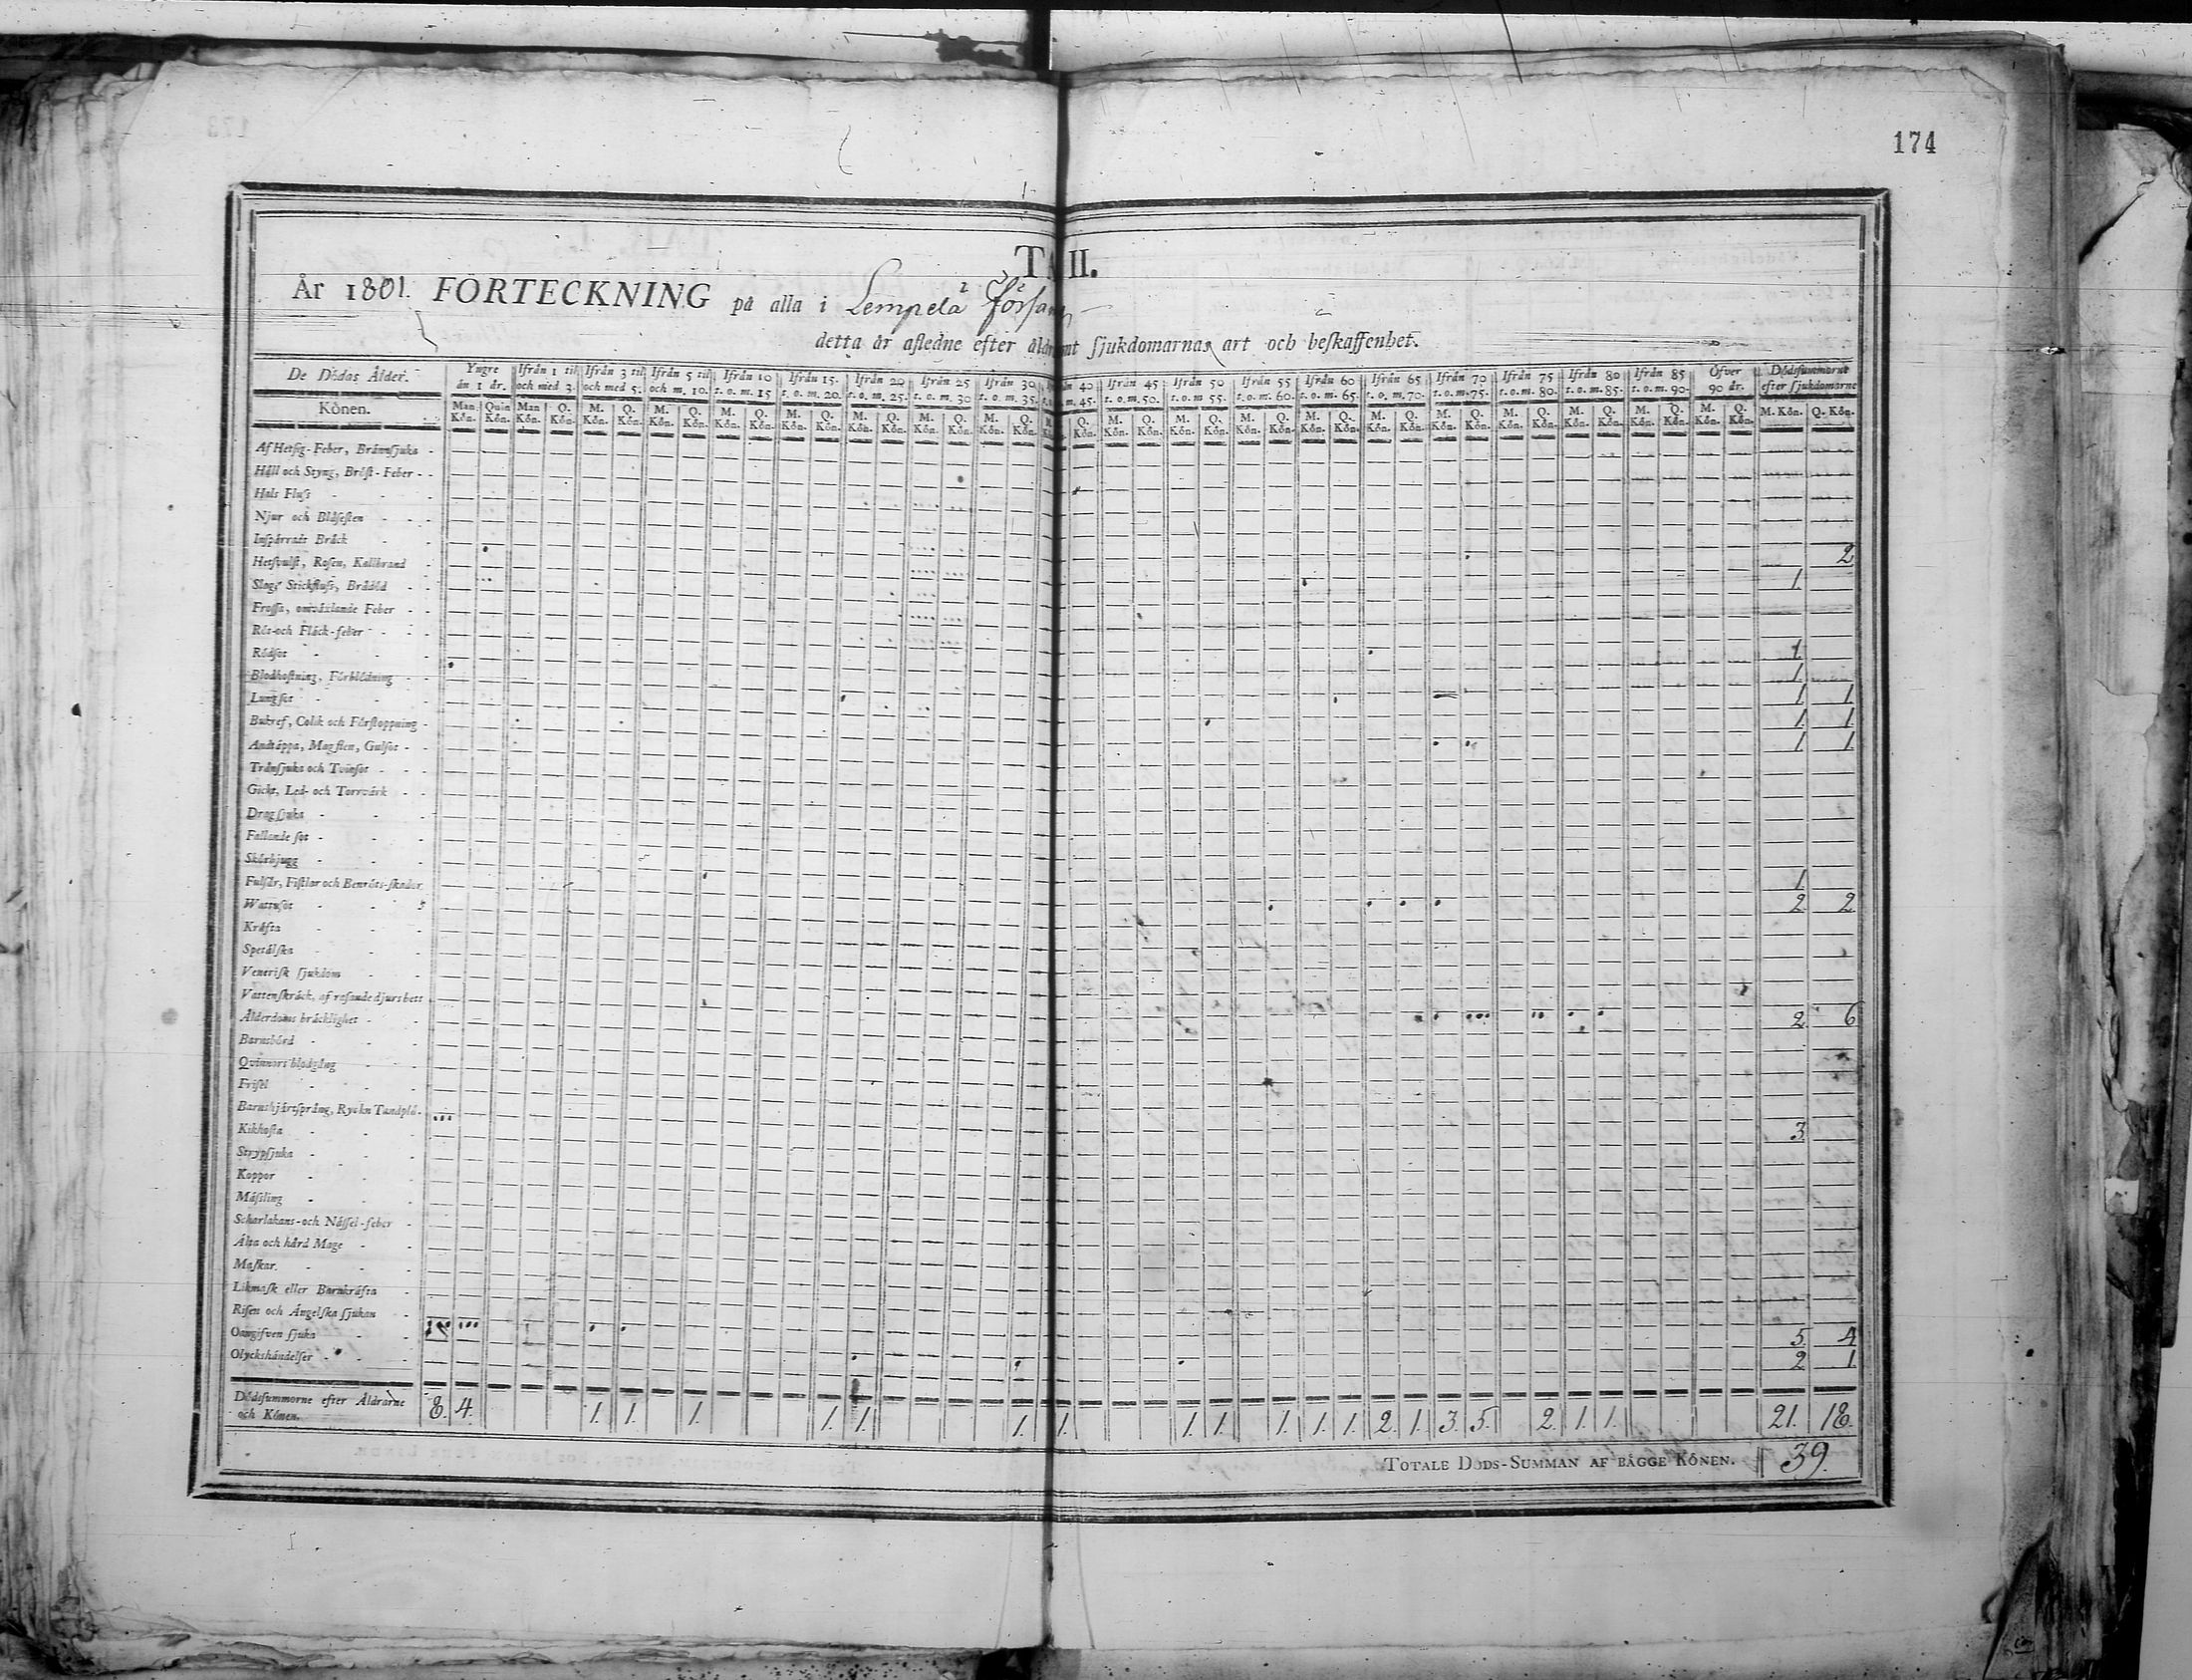 174
TA II.
År 1801. FÖRTECKNING på alla i Lempela Försam
detta år afledne efter åldr mt sjukdomarnas art och beskaffenhet.
De Dödas Ålder. Yngre än 1 år. Ifrån 1 til och med 3. Ifrån 3 til och med 5. Ifrån 5 til och m. 10. Ifrån 10 t. o. m. 15 Ifrån 15. t. o. m. 20. Ifrån 20 t. o. m. 25. Ifrån 25 t. o. m. 30 Ifrån 30 t. o. m. 35. 40 m. 45. Ifrån 45 t. o. m. 50. Ifrån 50 t. o. m 55. Ifrån 55 t. o. m. 60. Ifrån 60 t. o. m. 65. Ifrån 65 t. o. m. 70. Ifrån 70 t. o. m. 75. Ifrån 75 t. o. m. 80. Ifrån 80 t. o. m. 85. Ifrån 85 t. o. m. 90. Öfver 90 år. Dödssummorne efter sjukdomarne
Könen. Man Kön. Quin Kön. Man Kön. Q. Kön. M. Kön. Q. Kön. M. Kön. Q. Kön. M. Kön. Q. Kön. M. Kön. Q. Kön. M. Kön. Q. Kön. M. Kön. Q. Kön. M. Kön. Q. Kön. M. Q. Kön. M. Kön. Q. Kön. M. Kön. Q. Kön. M. Kön. Q. Kön. M. Kön. Q. Kön. M. Kön. Q. Kön. M. Kön. Q. Kön. M. Kön. Q. Kön. M. Kön. Q. Kön. M. Kön. Q. Kön. M. Kön. Q. Kön. M. Kön. Q. Kön.
Af Hetsig-Feber, Brännsjuka -
Håll och Styng, Bröst-Feber - -
Hals Fluss - - -
Njur och Blåsesten - - -
Inspärradt Bråck - -
Hetsvulst, Rosen, Kallbrand - 2
Slag, Stickfluss, Brådöd - - 1.
Frossa, omväxlande Feber - -
Röt-och Fläck-feber - - -
Rödsot - - - 1.
Blodhostning, Förblödning - - 1.
Lungsot - - - 1. 1.
Bukref, Colik och Förstoppning - 1. 1.
Andtäppa, Magsten, Gulsot - - 1. 1.
Tränsjuka och Tvinsot - - -
Gickt, Led- och Torrvärk - -
Dragsjuka - - -
Fallande sot - - -
Skörbjugg - - -
Fulsår, Fistlar och Benröts-skador 1.
Wattusot - - - 2. 2
Kräfta - - -
Spetälska - - -
Venerisk sjukdom - -
Vattenskräck, af rasande djurs bett
Ålderdoms bräcklighet - - 2. 6
Barnsbörd - - -
Qvinnors blodgång - -
Frisel - - -
Barnshjärtsprång, Ryckn Tandplå-
Kikhosta - - - 3.
Strypsjuka - - -
Koppor - - -
Mässling - - -
Scharlakans-och Nässel-feber -
Älta och hård Mage - -
Maskar. - - -
Likmask eller Barnkräfta -
Risen och Ängelska sjukan -
Oangifven sjuka - - 5. 4
Olyckshändelser - - - 2. 1.
Dödssummorne efter Åldrarne och Könen. 8. 4. 1. 1. 1. 1. 1. 1. 1. 1. 1. 1. 1. 1. 2. 1. 3. 5. 2. 1. 1. 21. 18.
TOTALE DÖDS-SUMMAN AF BÄGGE KÖNEN. 39.